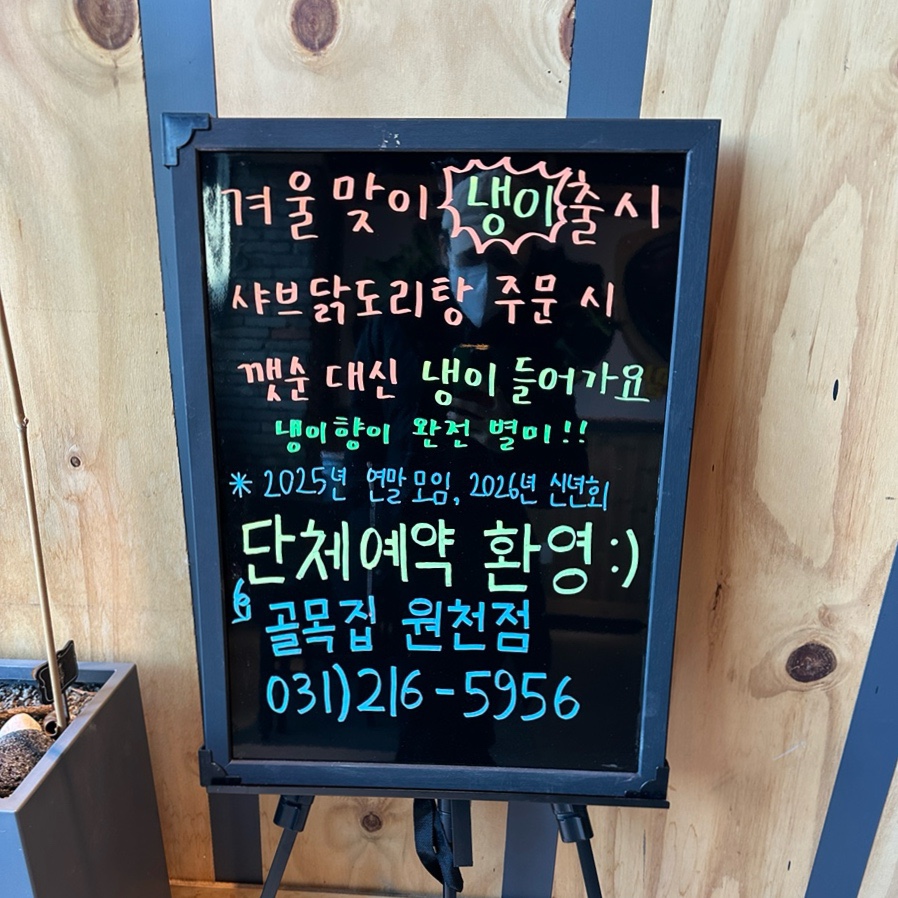 겨울맞이 냉이 출시
샤브닭도리탕 주문 시
깻순 대신 냉이 들어가요
냉이향이 완전 별미!!
* 2025년 연말모임, 2026년 신년회
단체예약 환영:)
골목집 원천점
031)216-5956